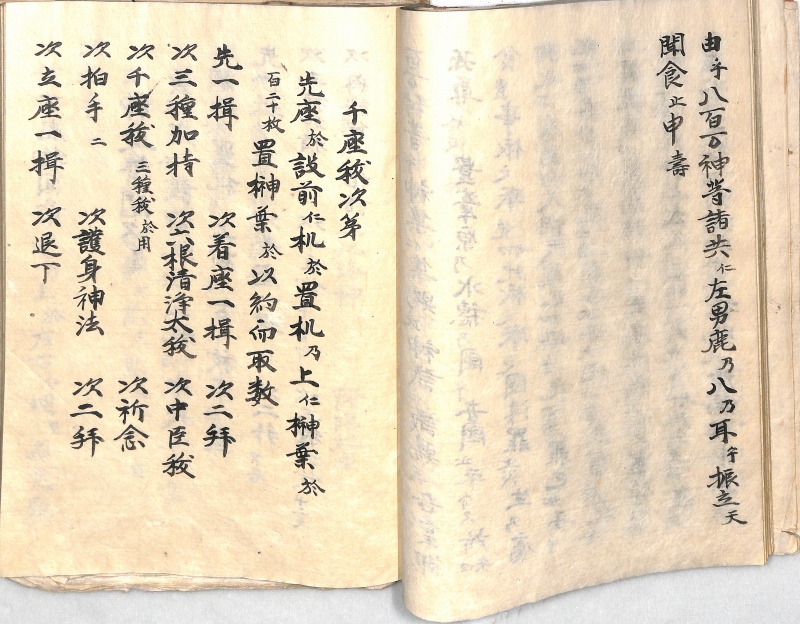 由乎八百万神等諸共仁左男鹿乃八乃耳乎振立天
聞食止申壽
千座秡次第
先座於設前仁机於置机乃上仁榊葉於
百二十枚置榊葉於以約而取数
先一揖 次着座一揖 次二拜
次三種加持 次六根清浄太秡 次中臣秡
次千座秡三種秡於用 次祈念
次拍手二 次護身神法 次二拜
次立座一揖 次退下